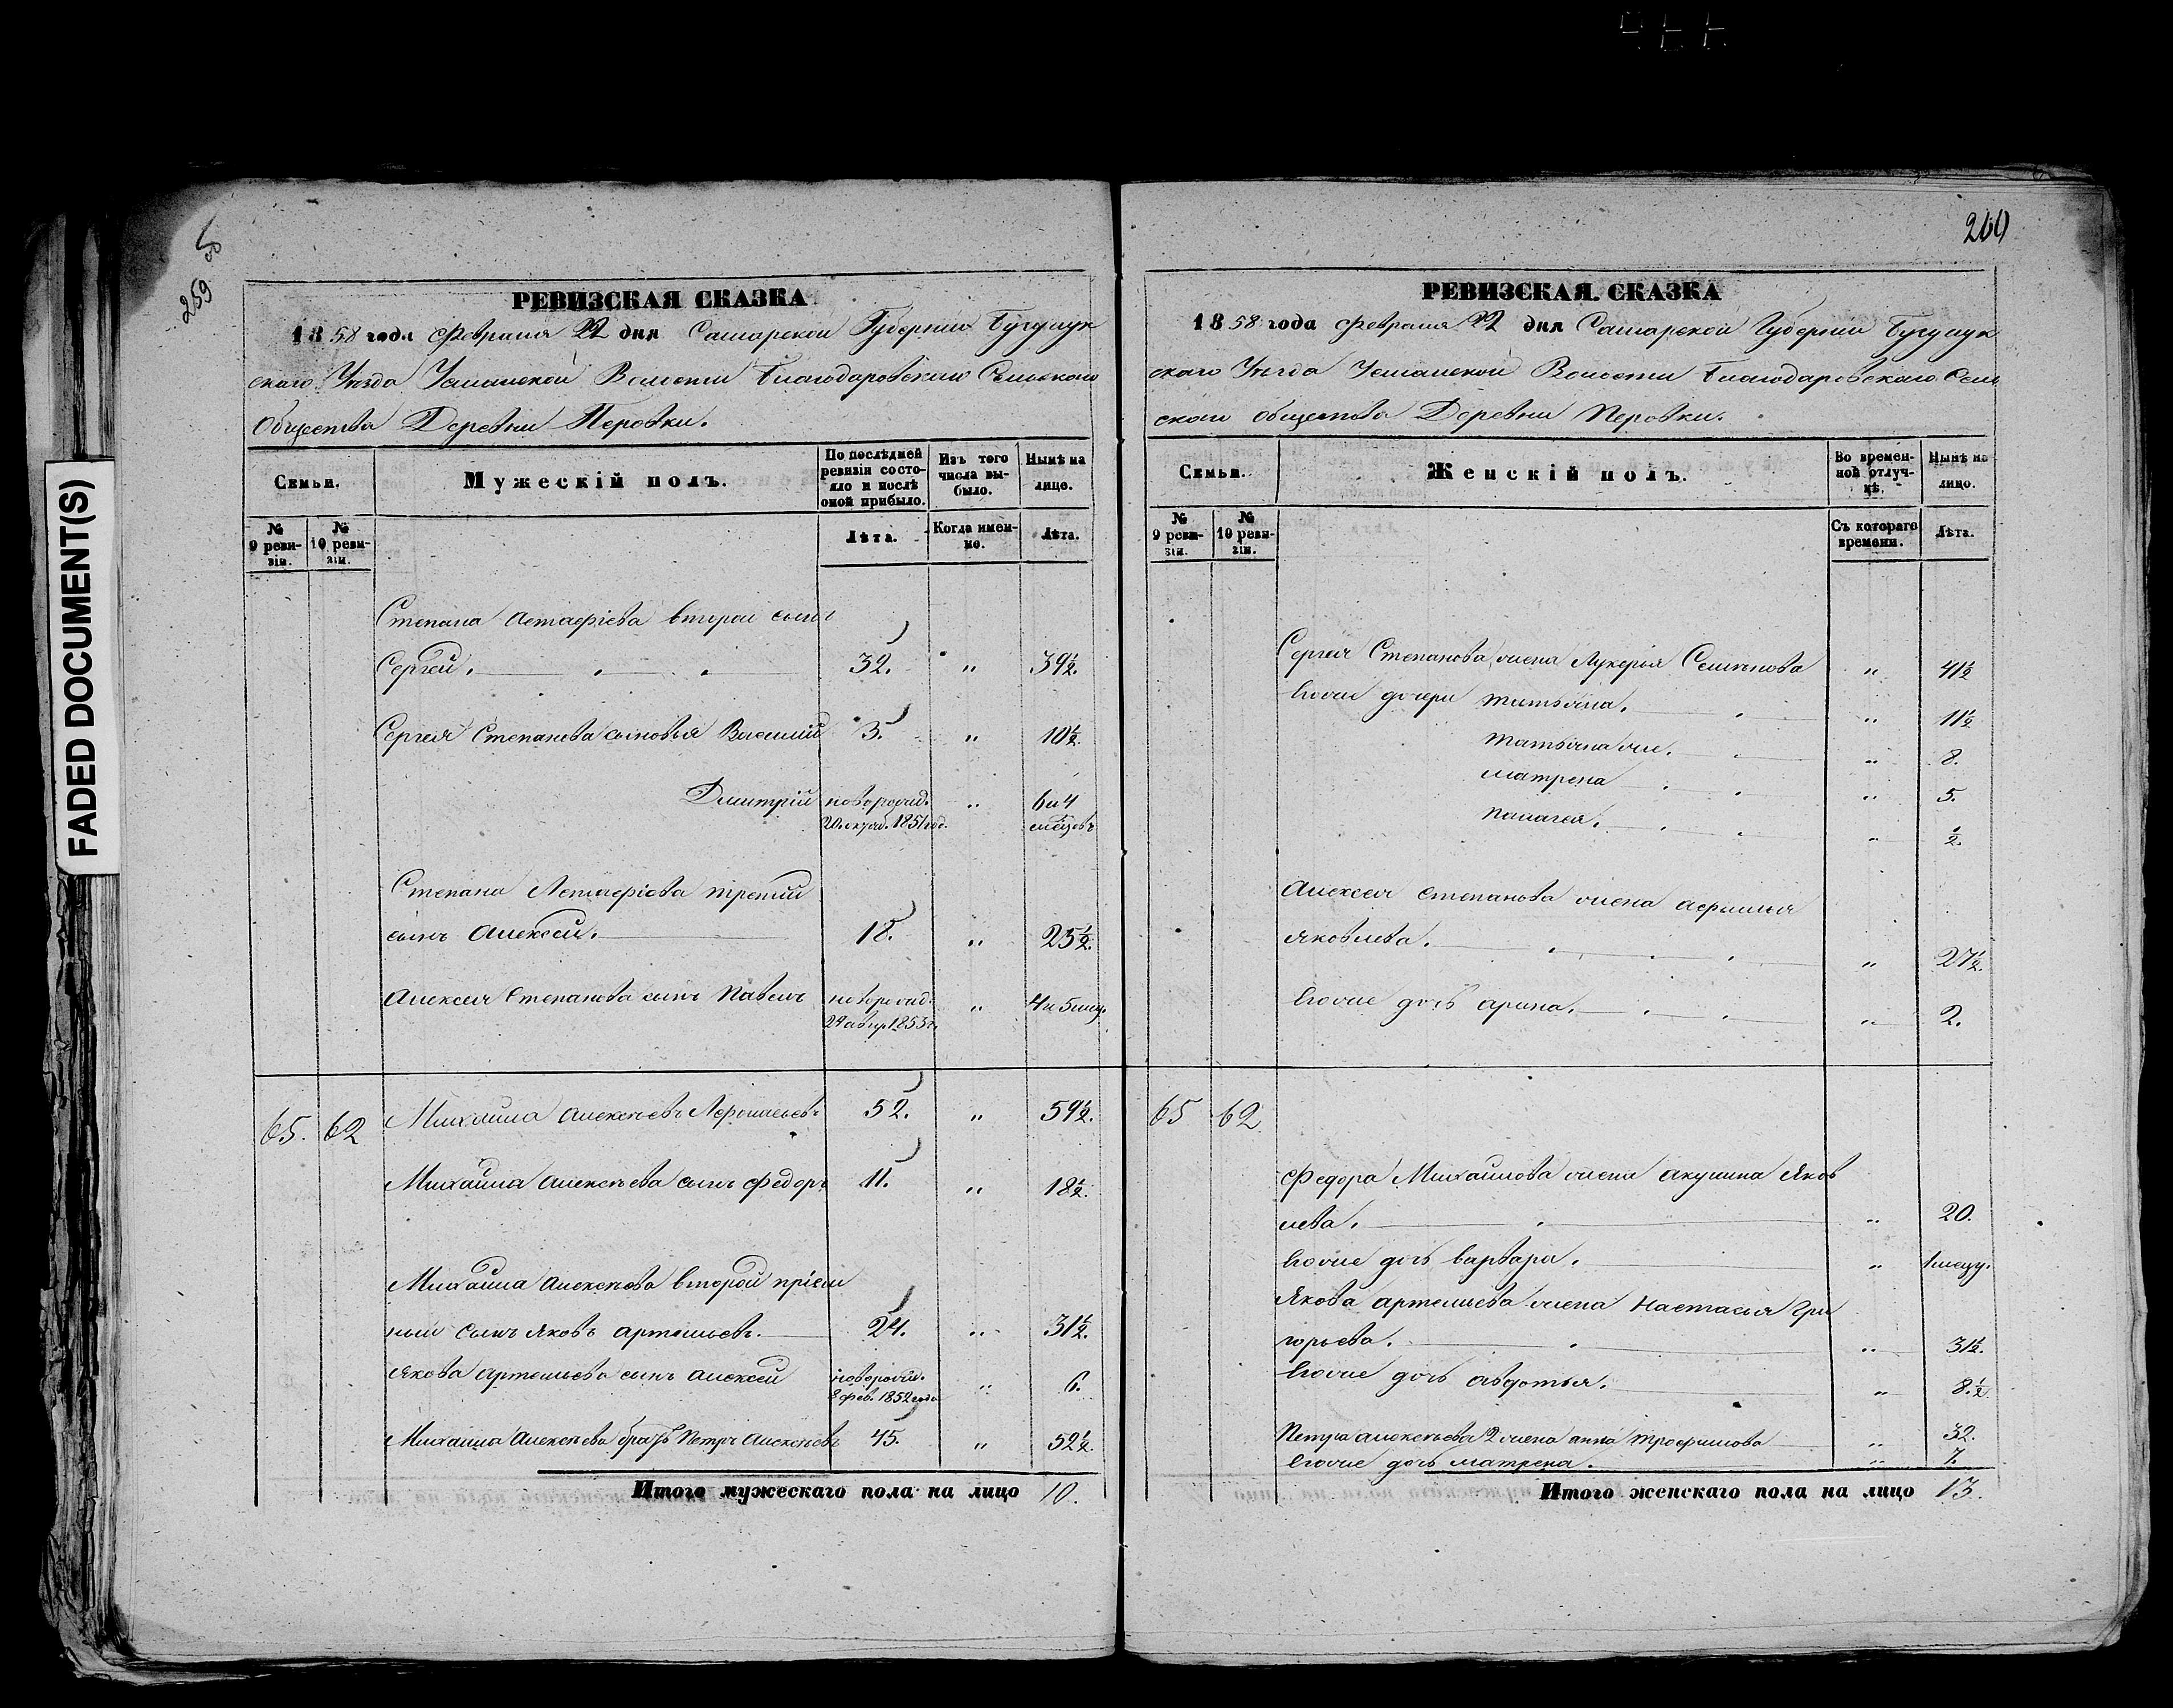 FADED DOCUMENT(S)
259
260
РЕВИЗСКАЯ СКАЗКА
1858 года Февраля 22 дня Самарской Губернiи Бугурук
скаго Уѣзда Усманской Волости Благодаровскаго Сельскаго
Общества Деревни Перовки.
Семьи.
Мужескiй полъ.
По послѣдней ревизiи состояло и послѣ оной прибыло.
Изъ того числа выбыло.
Нынѣ на лице.
№ 9 ревизiи.
№ 10 ревизiи.
Лѣта.
Когда именно.
Лѣта.
Степана Астафiева второй сынъ
Сергей. 32. " 39½.
Сергея Степанова сыновья Василий 3. " 10½.
Дмитрiй новорожд. " 6 и 4
1851 год. месецовъ
Степана Астафiева третий
сынъ Алексей. 18. " 25½.
Алексея Степанова сынъ Павелъ новорожд. " 4 и 5 мец.
1853 г.
65. 62 Михайла Алексѣевъ 52. " 59½.
Михайла Алексѣева сынъ Федоръ 11. " 18½.
Михайла Алексѣева второй прiем
ный сынъ Яковъ Артемьевъ. 24. " 31½.
Якова Артемьева сынъ Алексей новорожд. " 6.
8 фев. 1852 года
Михайла Алексѣева братъ Петръ Алексѣевъ 45. " 52½.
Итого мужескаго пола на лицо 10.
РЕВИЗСКАЯ. СКАЗКА
1858 года Февраля 22 дня Самарской Губернiи Бугурук
скаго Уѣзда Усманской Волости Благодаровскаго Сель
скаго общества Деревни Перовки.
Семьи.
Женскiй полъ.
Во временной отлучкѣ.
Нынѣ на лицо.
№ 9 ревизiи.
№ 10 ревизiи.
Съ котораго времени.
Лѣта.
Сергея Степанова жена Лукерья Семенова " 41½
Егоже дочери Татьяна. " 11½
Татьяна же. " 8.
Матрена " 5.
Палагея. " ½.
Алексея Степанова жена Афимья
Яковлева. " 27½.
Егоже дочь Арина. " 2.
65 62
Федора Михайлова жена Акулина Яков
лева. " 20.
Егоже дочь Варвара. " 1 мецу.
Якова Артемьева жена Настасья Гри
горьева. " 31½.
Егоже дочь Авдотья. " 8.½
Петра Алексѣева 2 жена Анна Трофимова " 32.
Егоже дочь Матрена. " 7.
Итого женскаго пола на лицо 13.